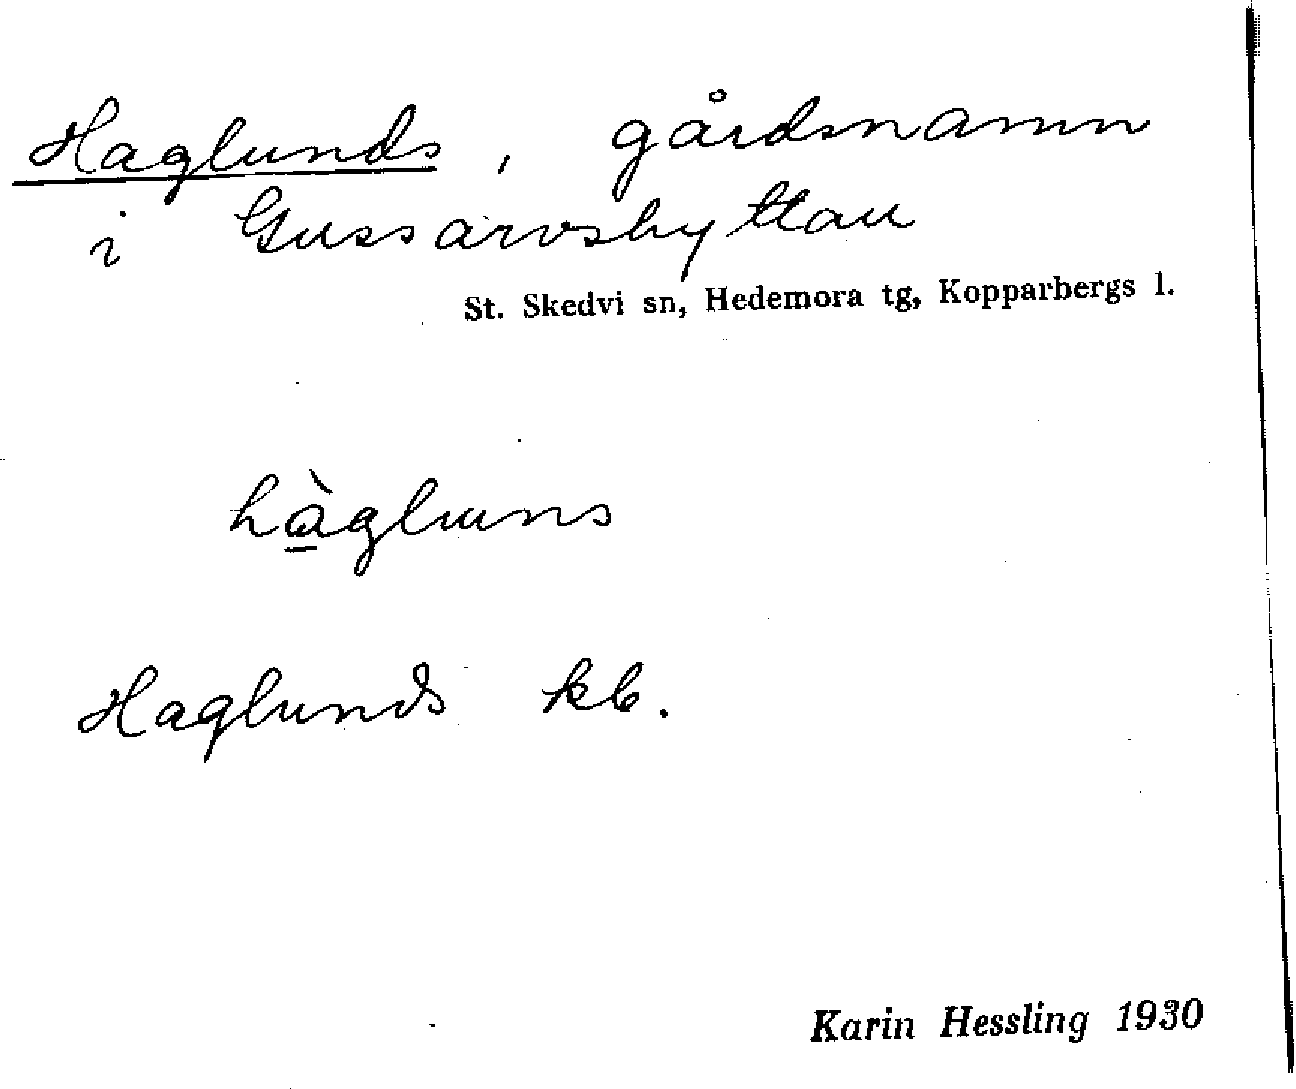 Haglunds, gårdsnamn
i Gussarvshyttan
St. Skedvi sn, Hedemora tg, Kopparbergs l.
hàgluns
Haglunds kb.
Karin Hessling 1930